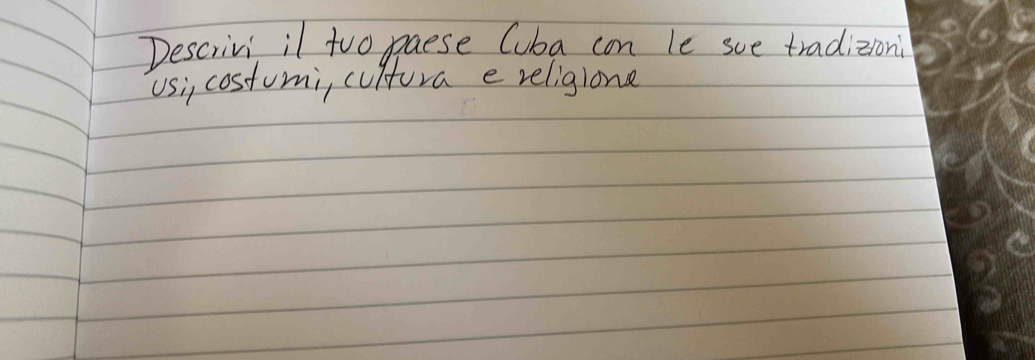 Descrivi il tuo paese Cuba con le sue tradizioni
usi, costumi, cultura e religione